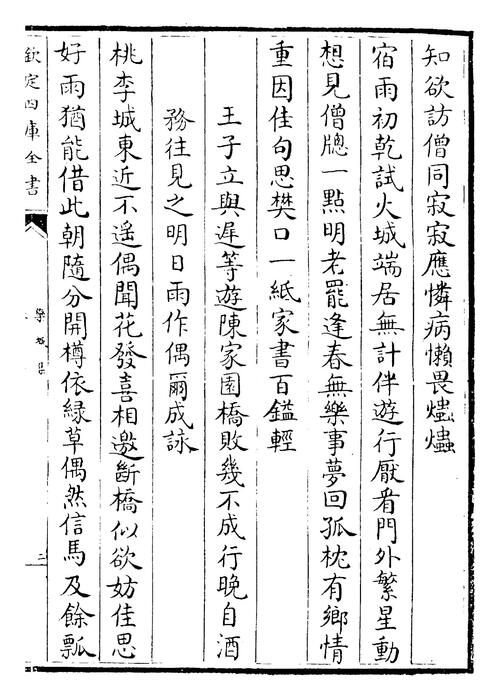 知欲訪僧同寂寂應憐病懶畏爞爞
宿雨初乾試火城端居無計伴遊行厭看門外繁星動
想見僧牕一點明老罷逢春無樂事夢回孤枕有鄉情
重因佳句思樊口一紙家書百鎰輕
王子立與遲等遊陳家園橋敗幾不成行晚自酒
務往見之明日雨作偶爾成詠
桃李城東近不遥偶聞花發喜相邀斷橋似欲妨佳思
好雨猶能借此朝隨分開樽依緑草偶然信馬及餘瓢
欽定四庫全書
欒城集
二